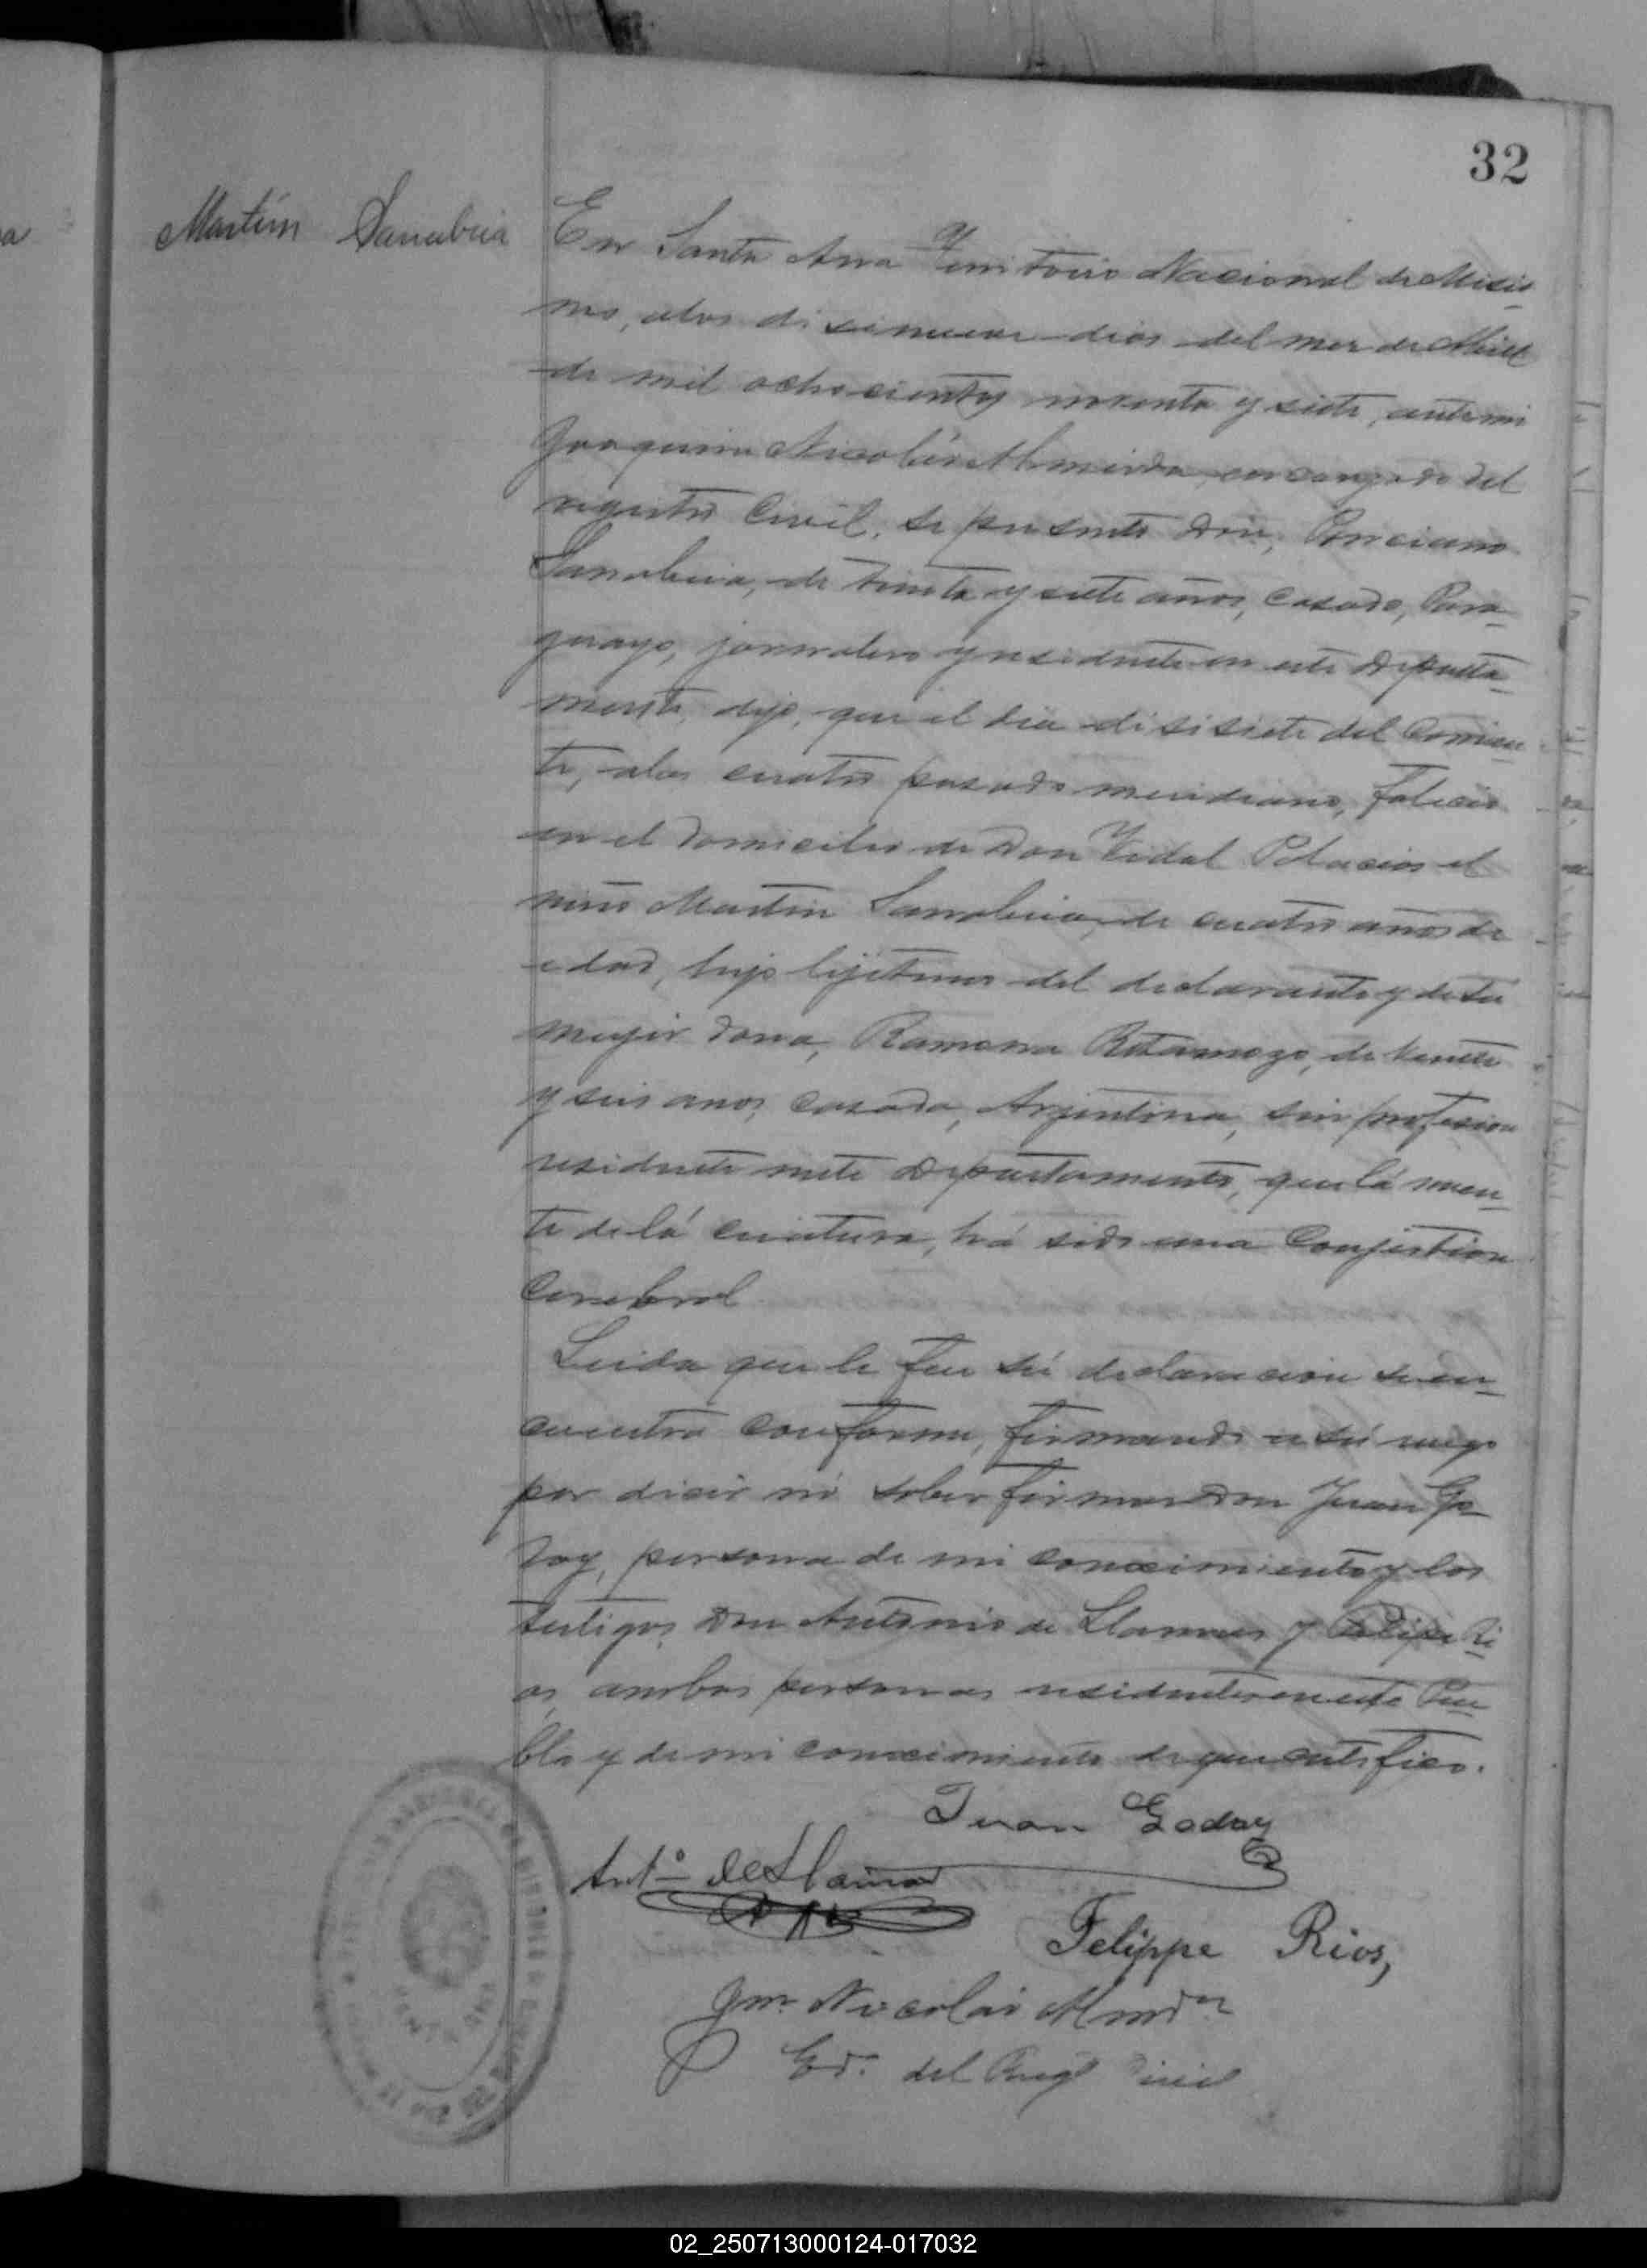 32
Martín Sanabria
En Santa Ana Territorio Nacional de Misio-
nes, alos disinueve dias del mes de Abril
de mil ochocientos noventa y siete, ante mi
Joaquin Nicolás Almeida, encargado del
registro Civil, se presento Don, Ponciano
Sanabria, de treinta y siete años, casado, Para-
guayo, jornalero y residente en este Departa-
mento, dijo, que el dia disisiete del Corrien-
te, alas cuatro pasado meridiano, falecio
en el domicilio de Don Vidal Palacios el
niño Martin Sanabria, de cuatro años de
edad, hijo lijitimo del declarante y de su
mujer dona, Ramona Retamozo, de veinte
y seis anos, casada, Arjentina, sin profesion
residente neste Departamento, que lá muer-
te de lá criatura, há sido una Conjestion
Cerebral
Leida que le fue sú declaracion se en-
cuentra conforme, firmando a sú ruego
por dicir nó saber firmar Don Juan Go-
doy, persona de mi conocimiento y los
testigos Don Antonio de Llamas y Felipe Ri-
os, ambos personas residentes en este Pue-
blo y de mi conocimiento de que certifico.
Juan Godoy
Antº de Llamas
Felippe Rios,
Jmº Nicolás Almdª
Edº del Regº Civil
02_250713000124-017032